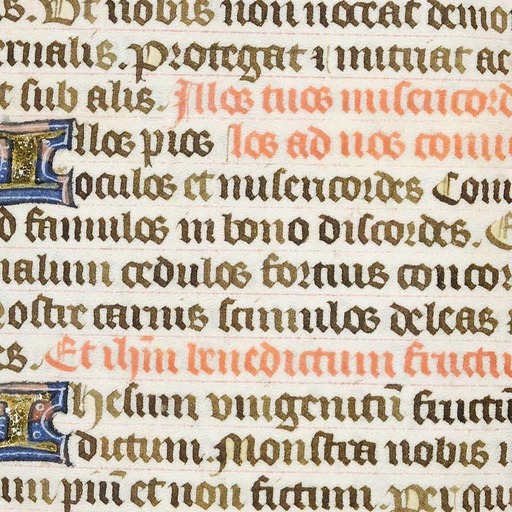 s. Ut nobis non noceat demo
ernalis. Protegat & mittat ac
t sub alis. Illos tuos misericord
Illos pios los ad nos conue
oculos et misericordes Conu
d famulos in bono discordes. E
malum credulos fortius concor
nostre carnis stimulos deleas
es. Et ihm̄ benedictum fructu
Ihesum vnigenitū fructū
dictum. Monstra nobis
um piū et non fictum. per qu